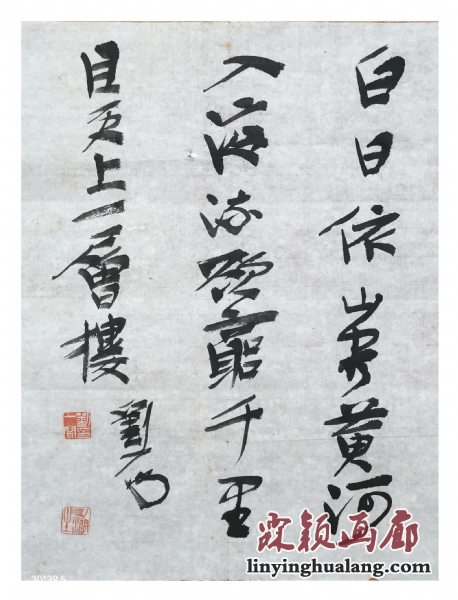 白日依山尽黄河
入海流欲窮千里
目更上一層樓
劉
霖颖画廊
linyinghualang.com
30*39.5